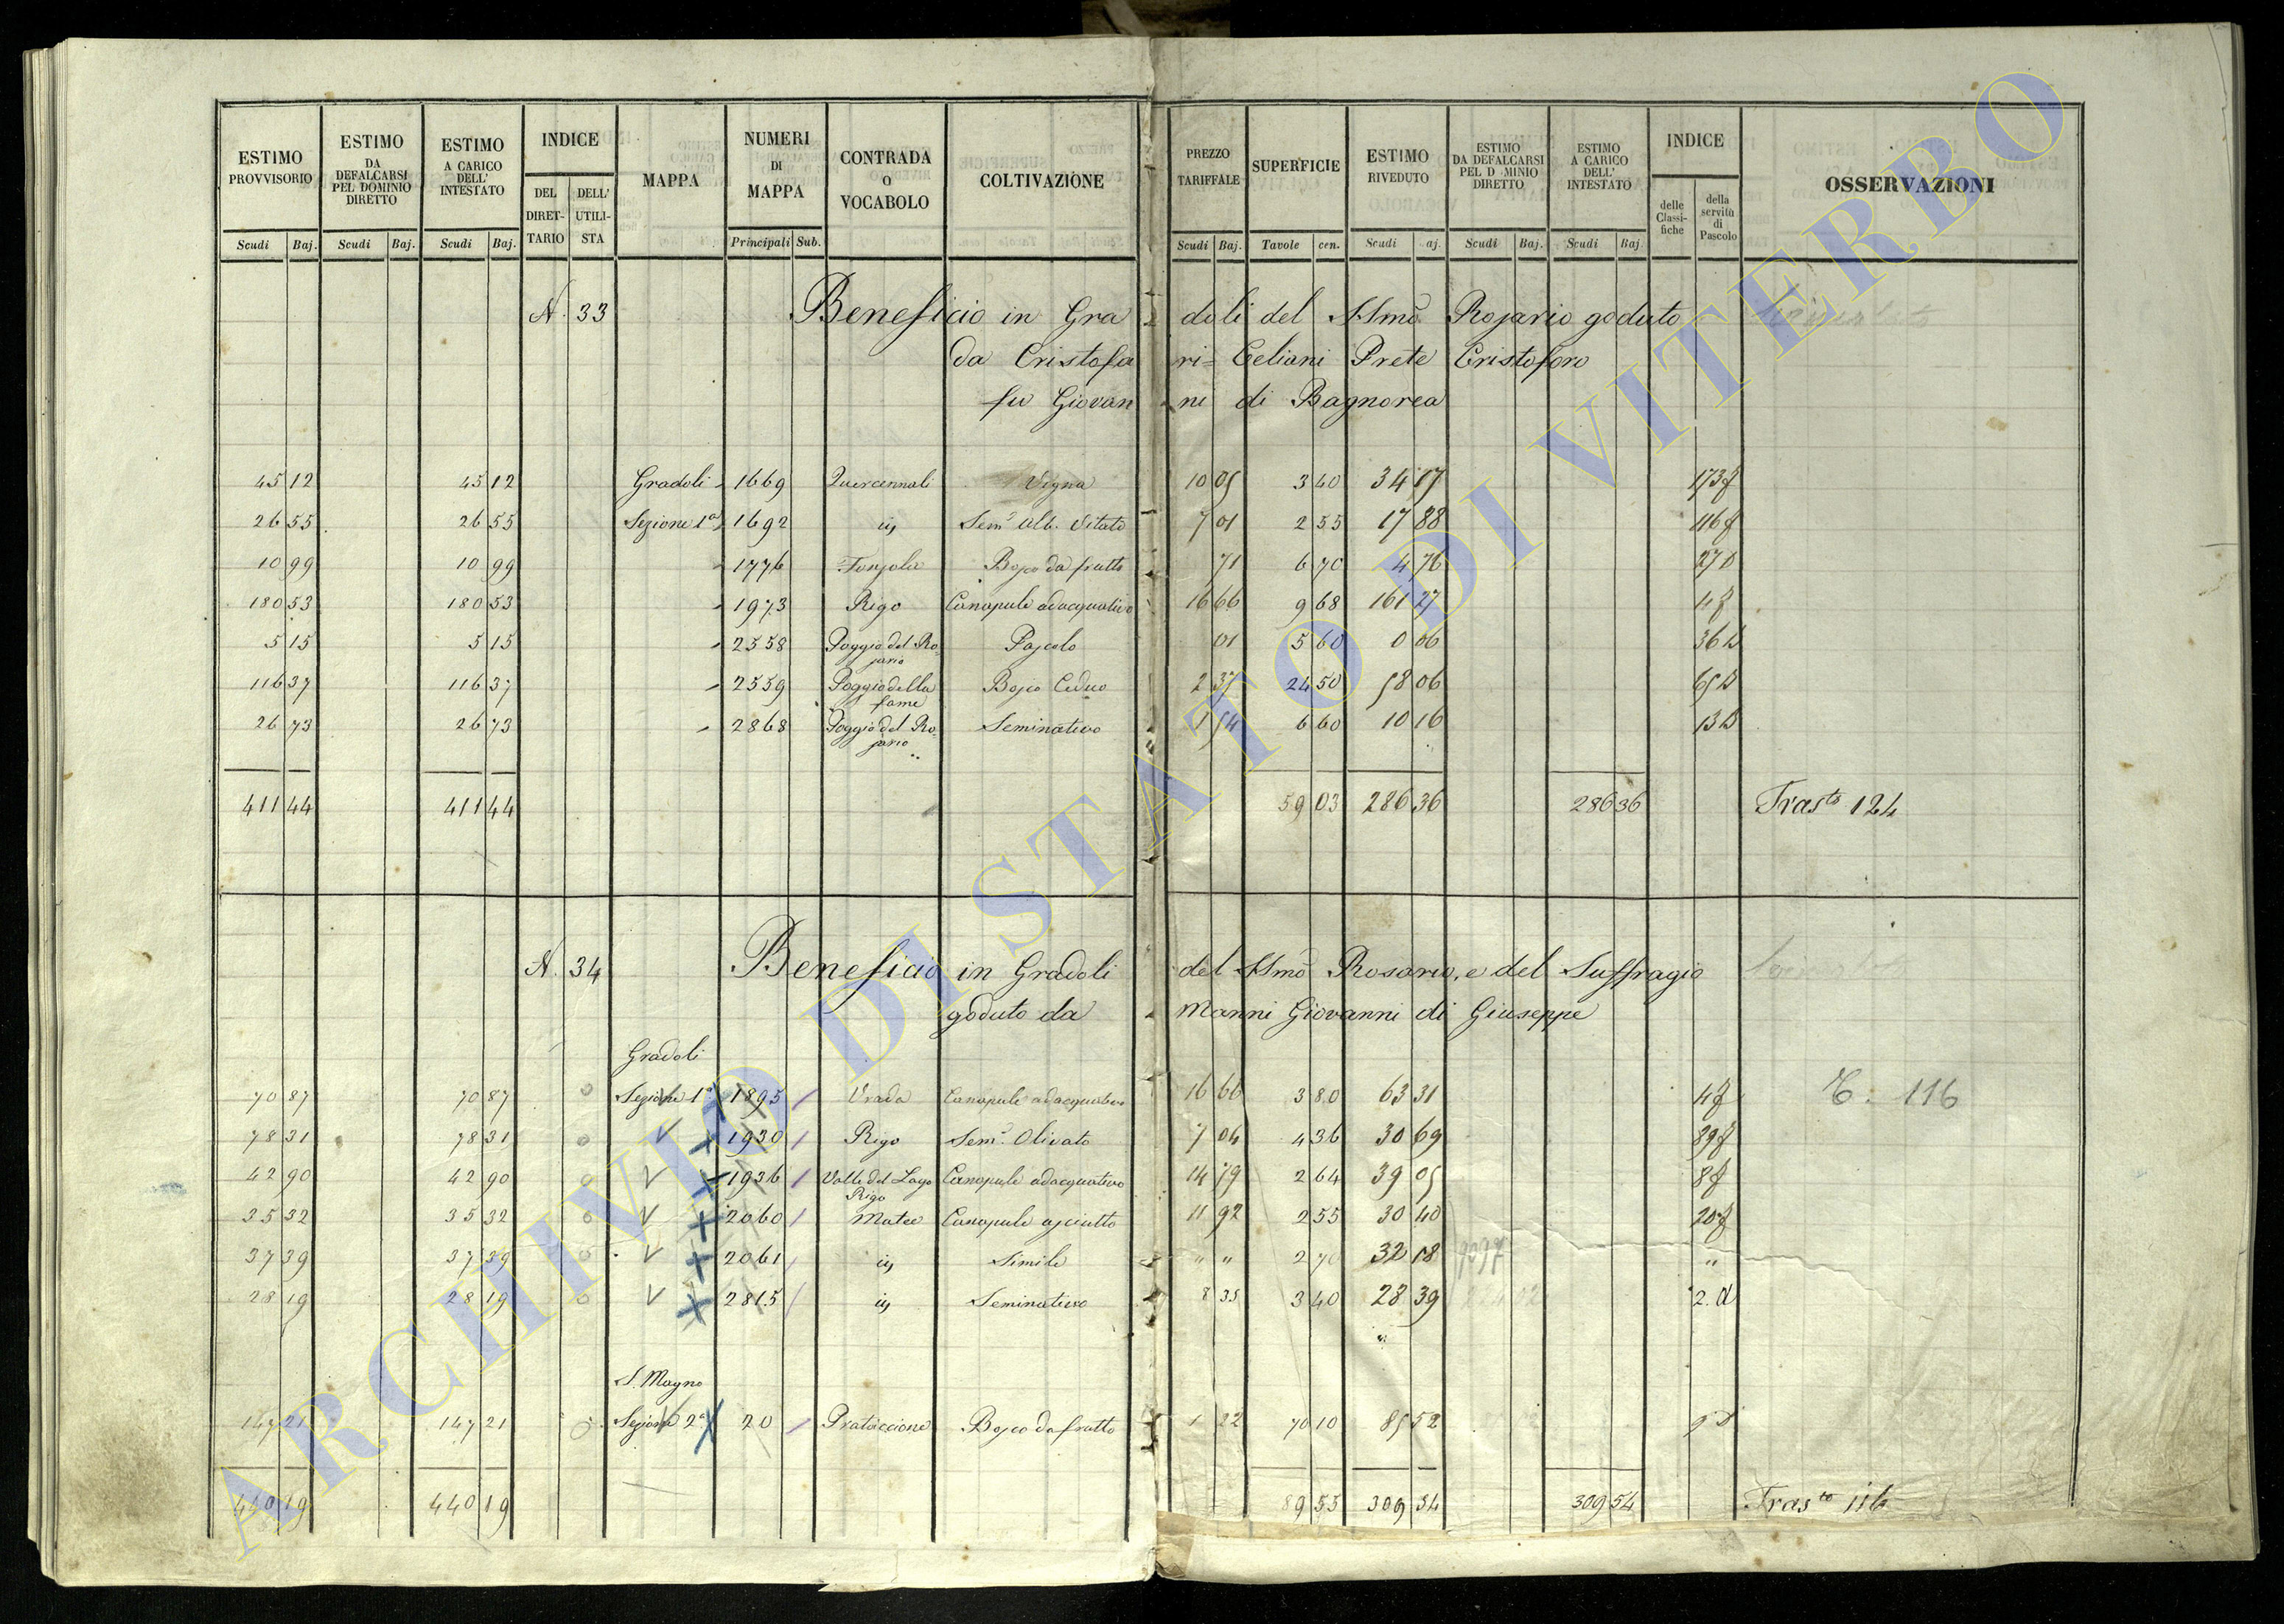 ESTIMO PROVVISORIO | ESTIMO DA DEFALCARSI PEL DOMINIO DIRETTO | ESTIMO A CARICO DELL' INTESTATO | INDICE | MAPPA | NUMERI DI MAPPA | CONTRADA O VOCABOLO | COLTIVAZIONE | PREZZO TARIFFALE | SUPERFICIE | ESTIMO RIVEDUTO | ESTIMO DA DEFALCARSI PEL D MINIO DIRETTO | ESTIMO A CARICO DELL' INTESTATO | INDICE | OSSERVAZIONI
DEL DIRETTARIO | DELL' UTILISTA | delle Classifiche | della servitù di Pascolo
Scudi | Baj. | Scudi | Baj. | Scudi | Baj. | Principali | Sub. | Scudi | Baj. | Tavole | cen. | Scudi | aj. | Scudi | Baj. | Scudi | Baj
N. 33 Beneficio in Gradoli del SSmo Rosario goduto
da Cristofari = Celiani Prete Cristoforo
fu Giovanni di Bagnorea
45 12 | 45 12 | Gradoli | 1669 | Quercennali | Vigna | 10 05 | 3 40 | 34 17 | 173 f
26 55 | 26 55 | Sezione 1a | 1692 | ivi | Semo Alb. Vitato | 7 01 | 2 55 | 17 88 | 116 f
10 99 | 10 99 | 1776 | Bosco da frutto | 71 | 6 70 | 4 76 | 27 D
180 53 | 180 53 | 1973 | Rigo | Canapule adacquativo | 16 66 | 9 68 | 161 27 | 4 f
5 15 | 5 15 | 2558 | Poggio del Rosario | Pascolo | 01 | 5 60 | 0 06 | 36 D
116 37 | 116 37 | 2559 | Poggio della fame | Bosco Ceduo | 2 37 | 24 50 | 58 06 | 65 D
26 73 | 26 73 | 2868 | Poggio del Rosario | Seminativo | 1 54 | 6 60 | 10 16 | 13 D
411 44 | 411 44 | 59 03 | 286 36 | 286 36 | Trasto 124
N. 34 Beneficio in Gradoli del SSmo Rosario, e del Suffragio
goduto da Manni Giovanni di Giuseppe
Gradoli
70 87 | 70 87 | Sezione 1a | 1895 | Vrada | Canapule adacquativo | 16 66 | 3 80 | 63 31 | 4 f | T. 116
78 31 | 78 31 | 1930 | Rigo | Semo Olivato | 7 04 | 4 36 | 30 69 | 89 f
42 90 | 42 90 | 1936 | Valle del Lago Rigo | Canapule adacquativo | 14 79 | 2 64 | 39 05 | 8 f
35 32 | 35 32 | 2060 | Matee | Canapule asciutto | 11 92 | 2 55 | 30 40 | 20 f
37 39 | 37 39 | 2061 | ivi | Simile | " " | 2 70 | 32 18 | "
28 19 | 28 19 | 2815 | ivi | Seminativo | 8 35 | 3 40 | 28 39 | 2. D
S. Magno
147 21 | 147 21 | Sezione 2a | 20 | Pratoccione | Bosco da frutto | 1 22 | 70 10 | 85 52 | 9 D
440 19 | 440 19 | 89 55 | 309 54 | 309 54 | Trasto 116
ARCHIVIO DI STATO DI VITERBO